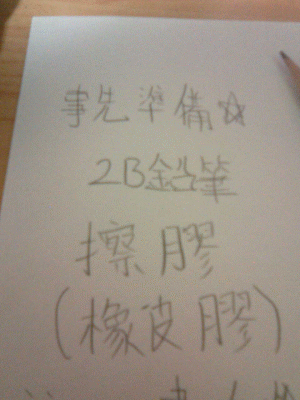 事先準備☆
2B鉛筆
擦膠
(橡皮膠)